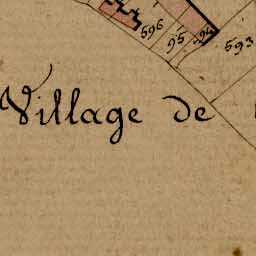 596
95
593
Village de